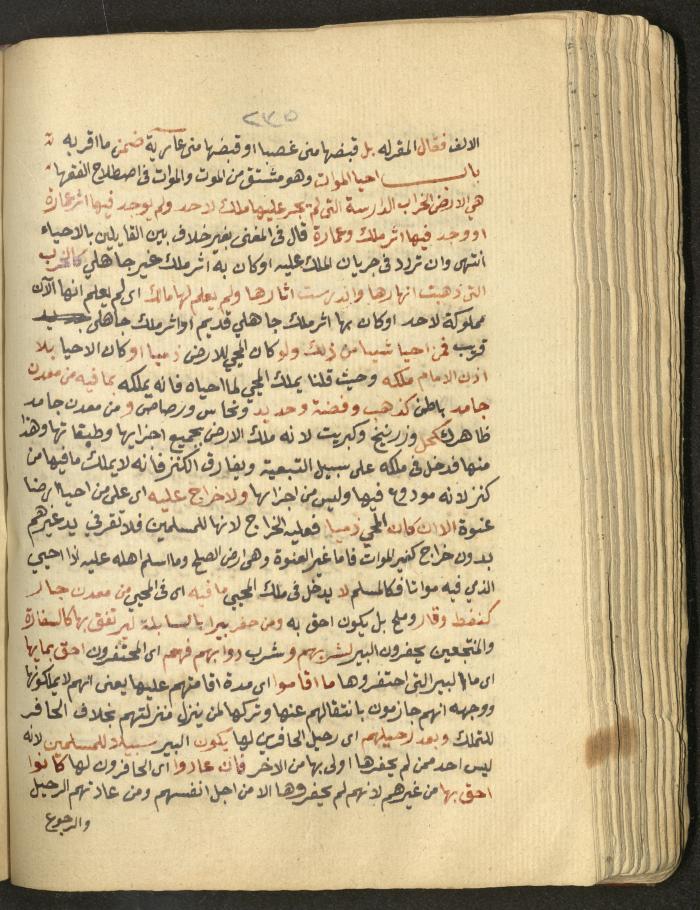 ٢٣٥
الالف فقال المقر له بل قبضها منى غصبا او قبضها منى عارية ضمن ما اقر به
باب احيا الموات وهو مشتق من الموت والموات فى اصطلاح الفقها
هى الارض الخراب الدارسة التى لم يجر عليها ملك لاحد ولم يوجد فيها اثر عمارة
او وجد فيها اثر ملك وعمارة قال فى المغنى بغير خلاف بين القايلين بالاحياء
انتهى وان تردد فى جريان الملك عليه او كان به اثر ملك غير جاهلي كالخرب
التى ذهبت انهارها واندرست اثارها ولم يعلم لها مالك اى لم يعلم انها الآن
مملوكة لاحد او كان بها اثر ملك جاهلي قديم او اثر ملك جاهلي
قريب فمن احيا شيا من ذلك ولو كان المحيي للارض ذميا او كان الاحيا بلا
اذن الامام ملكه وحيث قلنا يملك المحيي لما احياه فانه يملكه بما فيه من معدن
جامد باطن كذهب وفضة وحديد ونحاس ورصاص و من معدن جامد
ظاهر ككحل وزرنيخ وكبريت لانه ملك الارض بجميع اجزايها وطبقاتها وهذا
منها فدخل فى ملكه على سبيل التبعية ويفارق الكنز فانه لا يملك ما فيها من
كنز لانه مودوع فيها وليس من اجزاها ولا خراج عليه اى على من احيا ارضا
عنوة الا ان كان المحيي ذميا فعليه الخراج لانها للمسلمين فلا تقر في يد غيرهم
بدون خراج كغير الموات فاما غير العنوة وهى ارض الصلح وما اسلم اهله عليه اذا احيي
الذمي فيه مواتا فكالمسلم لا يدخل فى ملك المحيي ما فيه اى فى المحيي من معدن جار
كنفط وقار وملح بل يكون احق به ومن حفر بيرا بالسابلة ليرتفق بها كالسفارة
والمنتجعين يحفرون البير لشربهم وشرب دوابهم فهم اى المحتفرون احق بمايها
اى ما البير التى احتفروها ما اقاموا اى مدة اقامتهم عليها يعنى انهم لا يملكونها
ووجهه انهم جازمون بانتقالهم عنها وتركها لمن ينزل منزلتهم بخلاف الحافر
للتملك وبعد رحيلهم اى رحيل الحافري لها يكون البير سبيلا للمسلمين لانه
ليس احد ممن لم يحفرها اولى بها من الاخر فان عادوا اى الحافرون لها كانوا
احق بها من غيرهم لانهم لم يحفروها الا من اجل انفسهم ومن عادتهم الرحيل
والرجوع